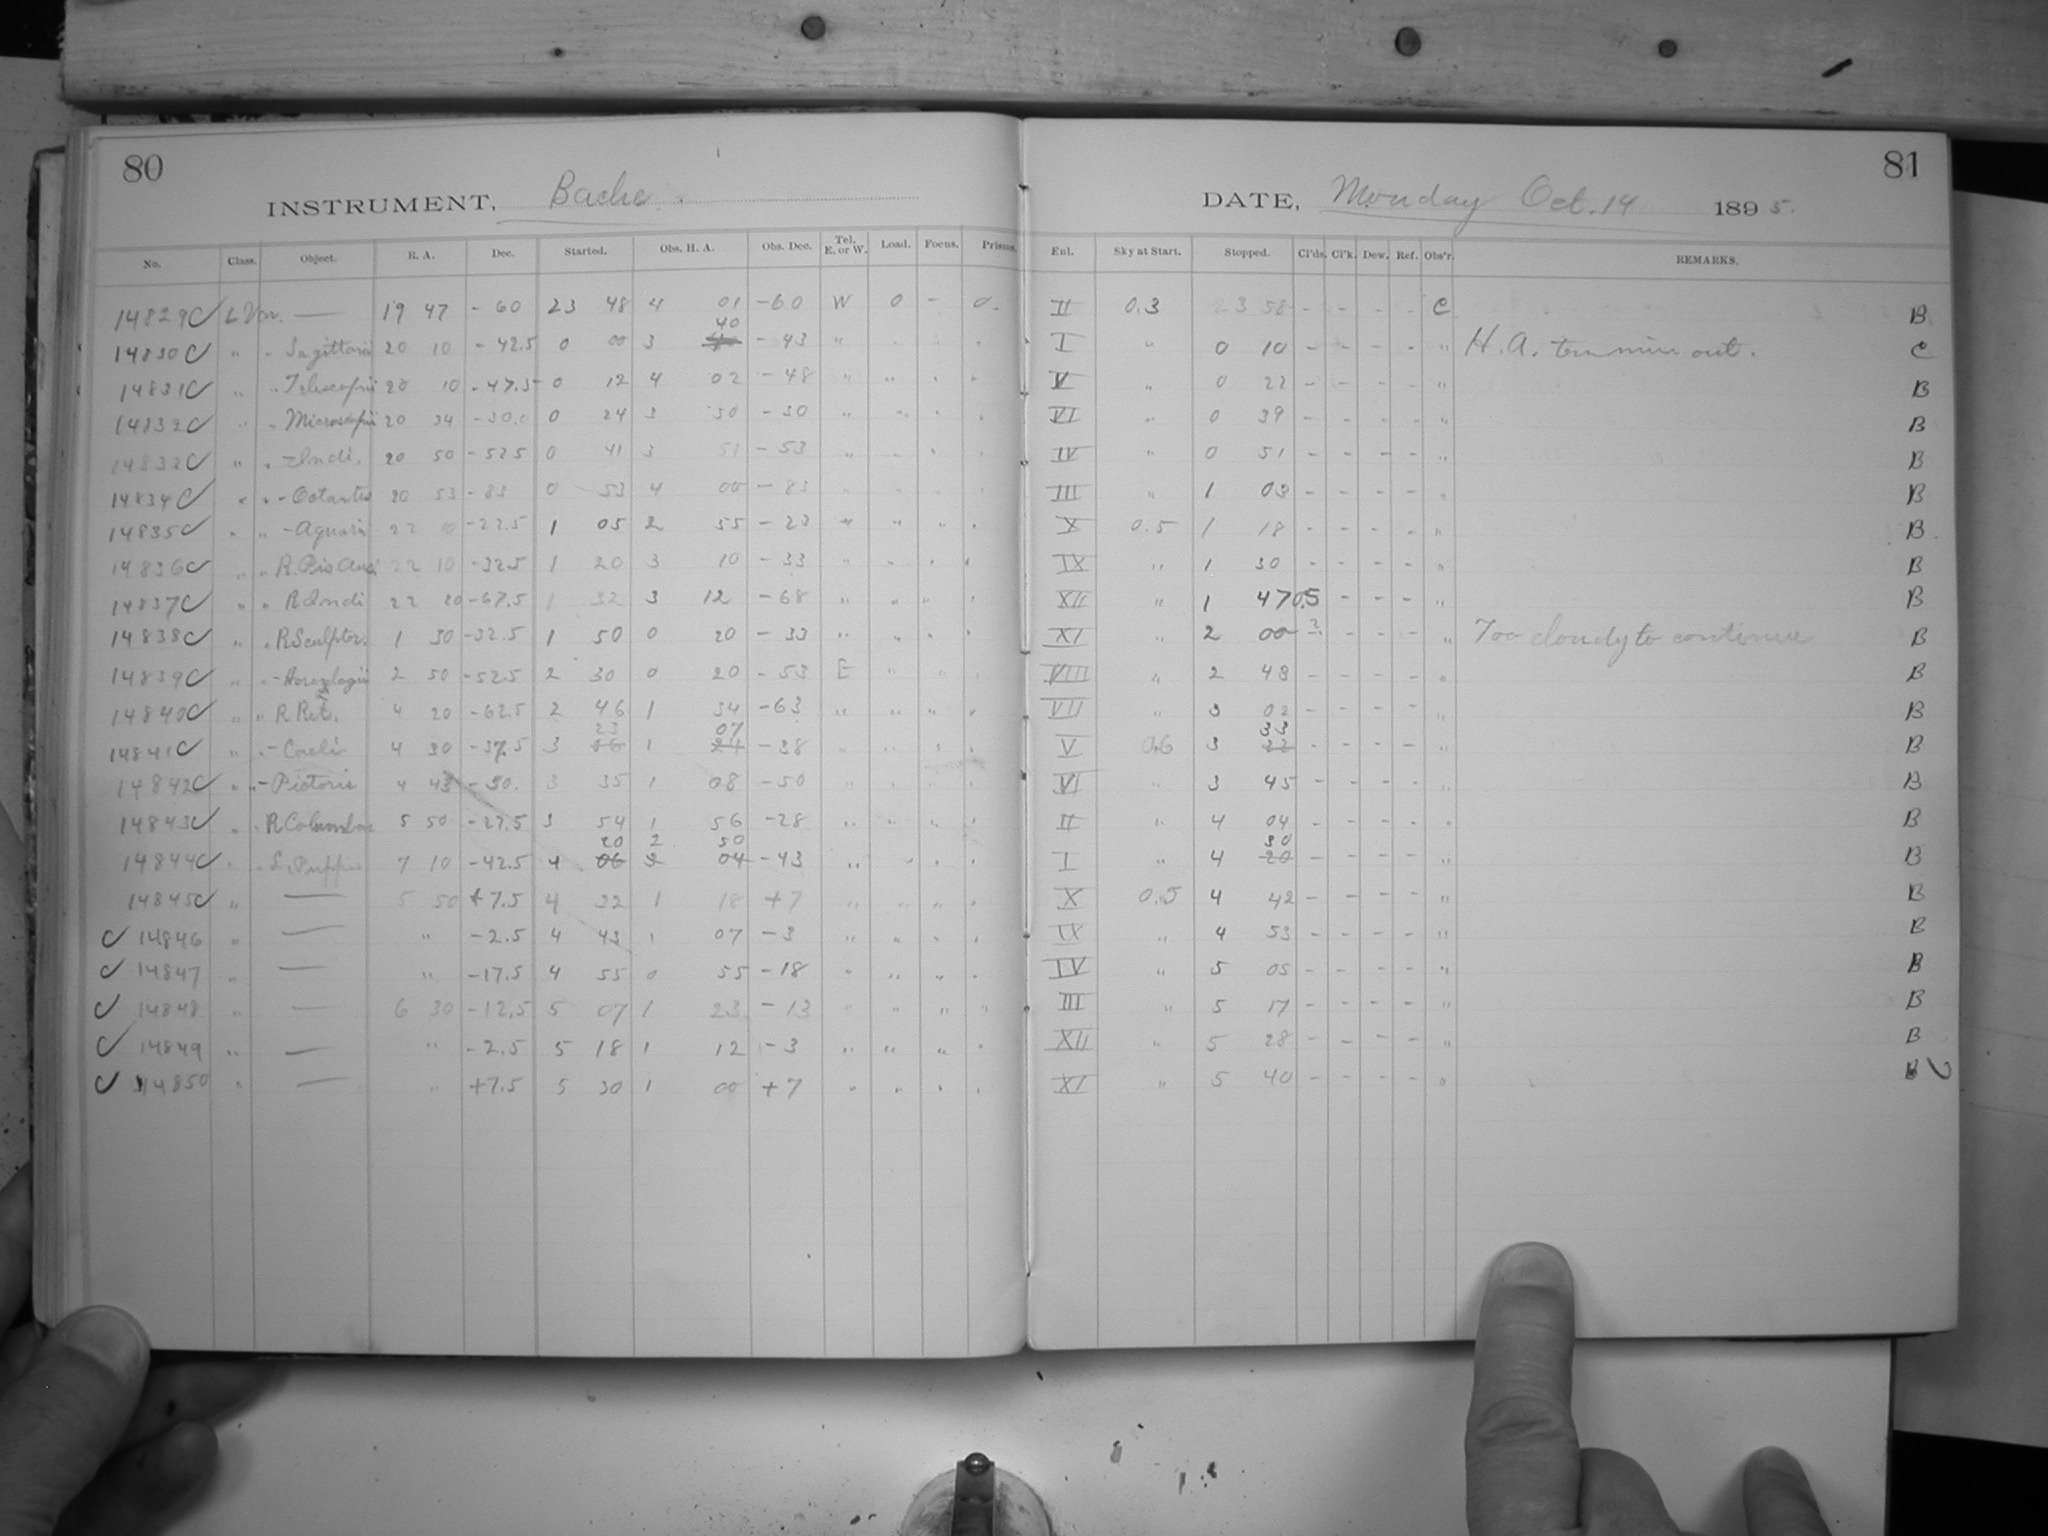 80
INSTRUMENT, Bache.
No. Class. Object. R. A. Dec. Started. Obs. H. A. Obs. Dec. Tel. E. or W. Load. Focus. Prisms.
14829 C L Var. — 19 47 - 60 23 48 4 01 -60 W 0 - 0.
14830 C " " Sagittarii 20 10 - 42.5 0 00 3 40 - 43 " " " "
14831 C " " Telescopii 20 10 - 47.5 0 12 4 02 - 48 " " " "
14832 C " " Microscopii 20 34 - 30.0 0 24 3 50 - 30 " " " "
14833 C " " - Indi. 20 50 - 52.5 0 41 3 51 - 53 " " " "
14834 C " " - Octantis 20 53 - 83 0 53 4 00 - 83 " " " "
14835 C " " - Aquarii 22 10 - 22.5 1 05 2 55 - 23 " " " "
14836 C " " R. Pis Aus 22 10 -32.5 1 20 3 10 - 33 " " " "
14837 C " " R Indi 22 20 -67.5 1 32 3 12 - 68 " " " "
14838 C " " R Sculptor. 1 30 -32.5 1 50 0 20 - 33 " " " "
14839 C " " - Horologii 2 50 -52.5 2 30 0 20 - 53 E " " "
14840 C " " R Ret. 4 20 -62.5 2 46 1 34 -63 " " " "
14841 C " " - Caeli 4 30 -37.5 3 23 1 07 24 - 38 " " " "
14842 C " " - Pictoris 4 43 - 50. 3 35 1 08 - 50 " " " "
14843 C " " R Columbae 5 50 -27.5 3 54 1 56 -28 " " " "
14844 C " " L. Puppis 7 10 -42.5 4 20 06 2 50 04 - 43 " " " "
14845 C " — 5 50 +7.5 4 32 1 18 +7 " " " "
C 14846 " — " -2.5 4 43 1 07 - 3 " " " "
C 14847 " — " -17.5 4 55 0 55 - 18 " " " "
C 14848 " — 6 30 -12.5 5 07 1 23 - 13 " " " "
C 14849 " — " - 2.5 5 18 1 12 - 3 " " " "
C 14850 " — " +7.5 5 30 1 00 + 7 " " " "
81
DATE, Monday Oct. 14 1895.
Enl. Sky at Start. Stopped. Cl'ds. Cl'k. Dew. Ref. Obs'r. REMARKS.
II 0.3 23 58 - - - - C B
I " 0 10 - - - - " H. A. ten min out. C
V " 0 22 - - - - " B
VI " 0 39 - - - - " B
IV " 0 51 - - - - " B
III " 1 03 - - - - " B
X 0.5 1 18 - - - - " B
IX " 1 30 - - - - " B
XII " 1 47 0.5 - - - " B
XI " 2 00 ? - - - " Too cloudy to continue B
VIII " 2 43 - - - - " B
VII " 3 02 - - - - " B
V 0.6 3 33 - - - - " B
VI " 3 45 - - - - " B
II " 4 04 - - - - " B
I " 4 30 20 - - - - " B
X 0.5 4 42 - - - - " B
IX " 4 53 - - - - " B
IV " 5 05 - - - - " B
III " 5 17 - - - - " B
XII " 5 28 - - - - " B
XI " 5 40 - - - - " B